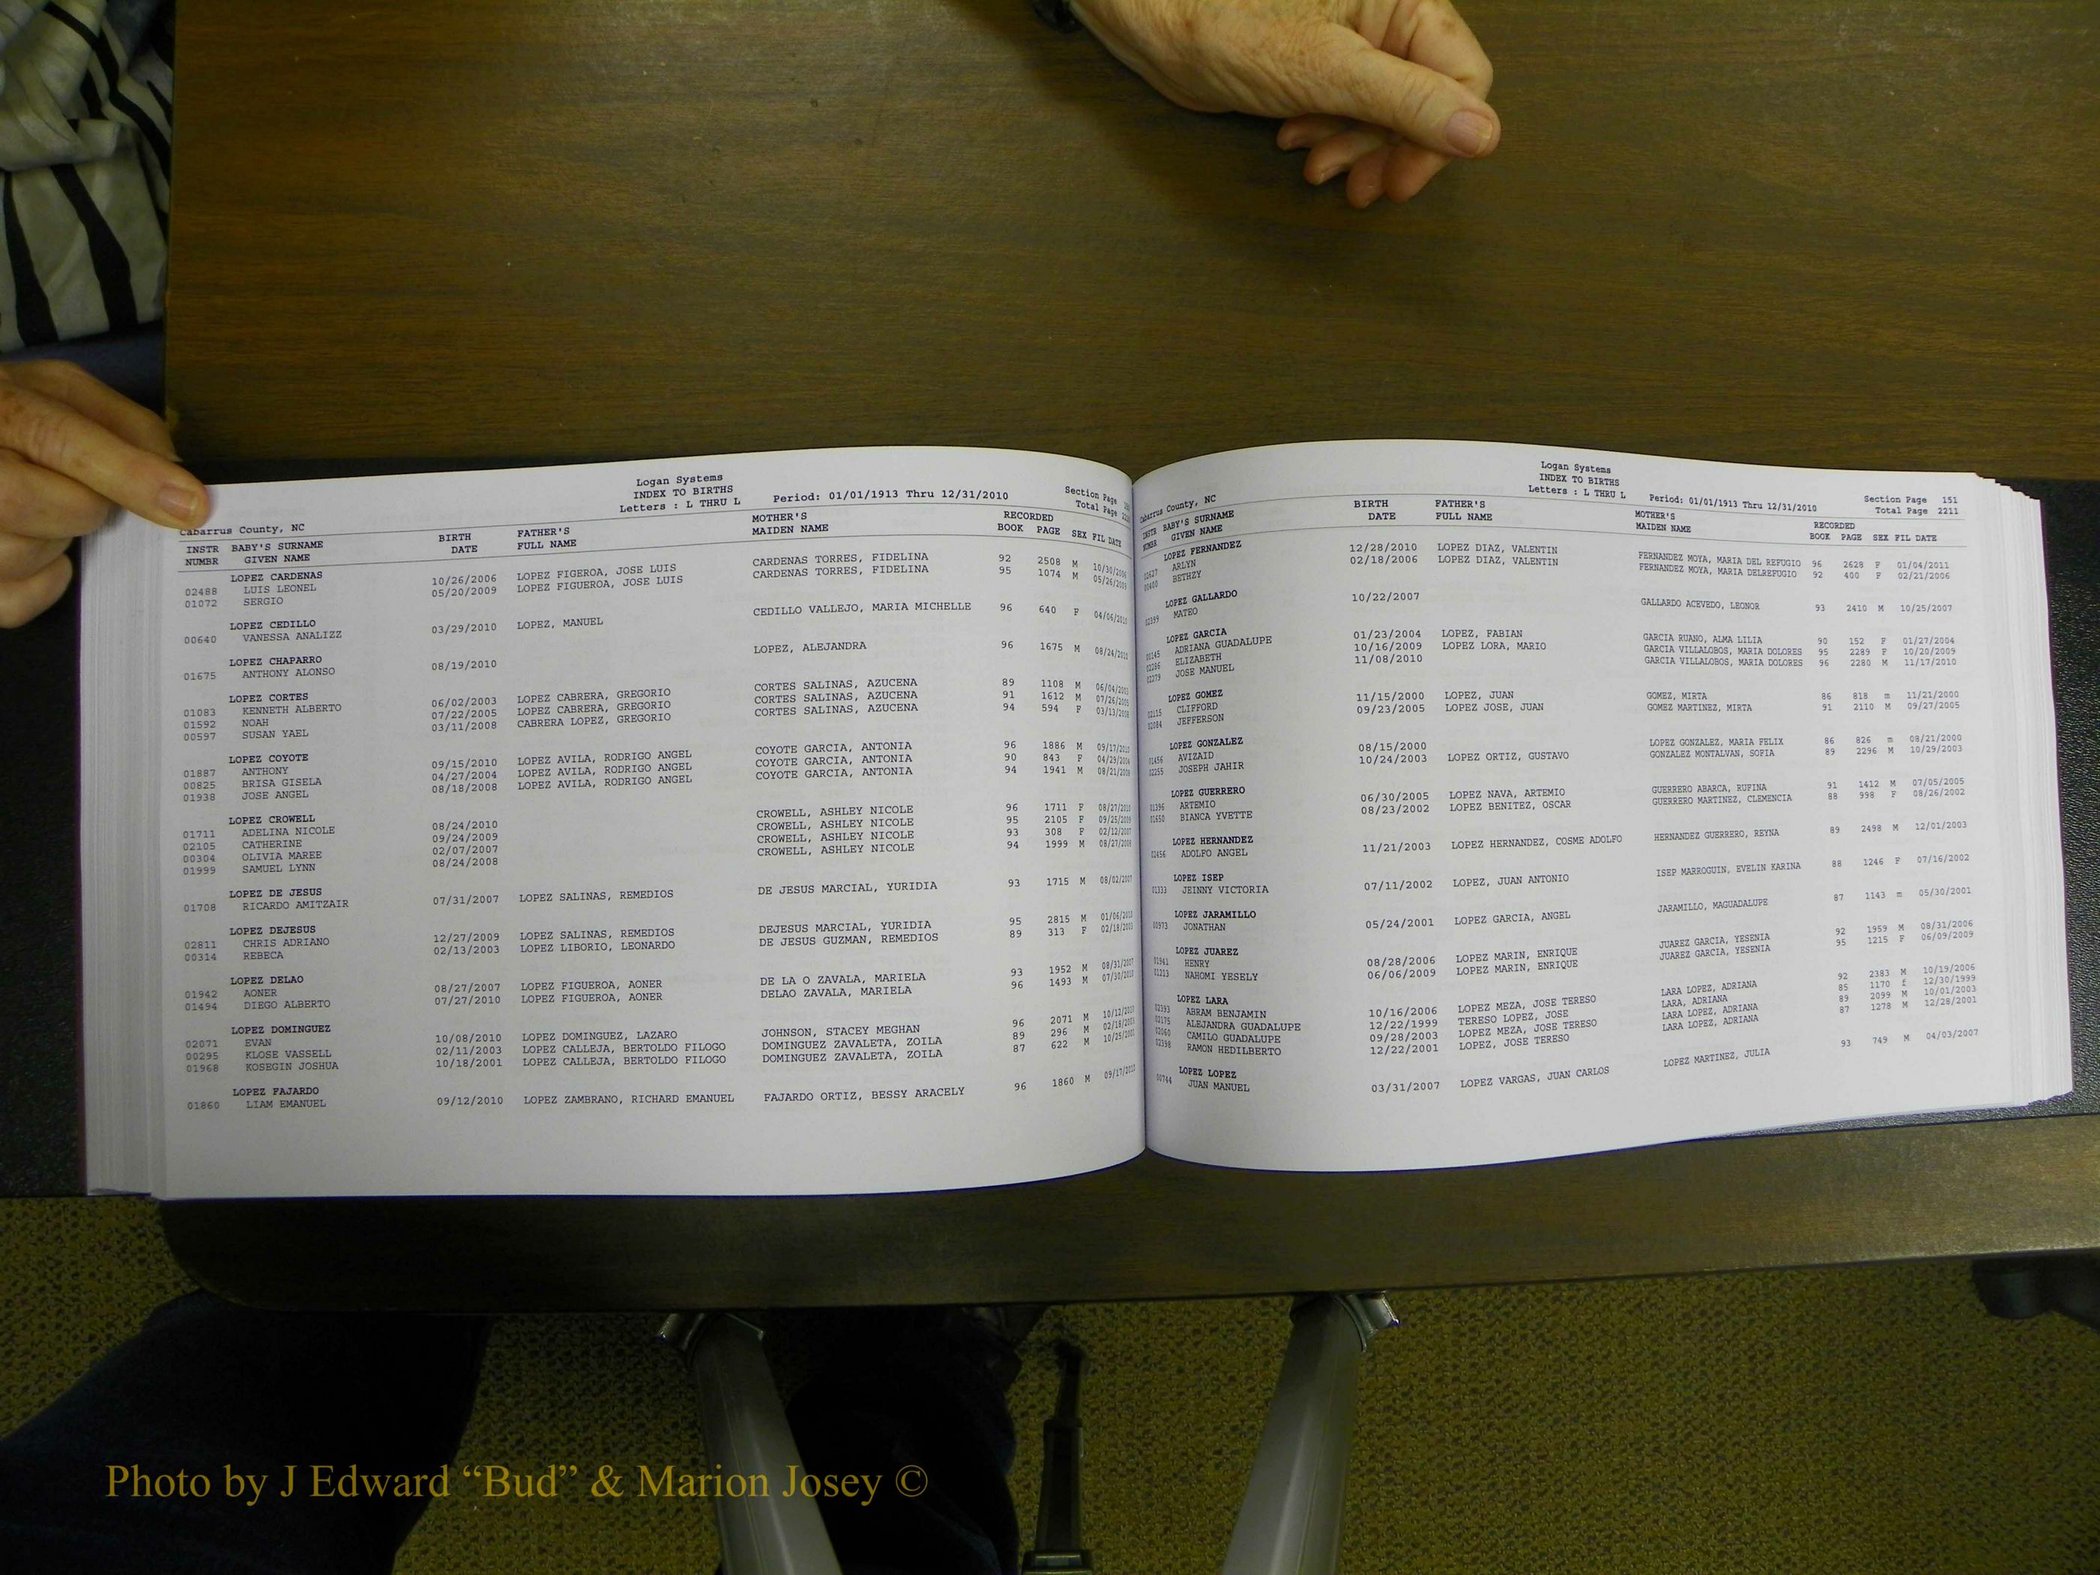 Logan Systems
INDEX TO BIRTHS
Letters : L THRU L Period: 01/01/1913 Thru 12/31/2010 Section Page
Total Page
Cabarrus County, NC
INSTR BABY'S SURNAME BIRTH FATHER'S MOTHER'S RECORDED
NUMBR GIVEN NAME DATE FULL NAME MAIDEN NAME BOOK PAGE SEX FIL DATE
LOPEZ CARDENAS
02488 LUIS LEONEL 10/26/2006 LOPEZ FIGEROA, JOSE LUIS CARDENAS TORRES, FIDELINA 92 2508 M 10/30/2006
01072 SERGIO 05/20/2009 LOPEZ FIGUEROA, JOSE LUIS CARDENAS TORRES, FIDELINA 95 1074 M 05/26/2009
LOPEZ CEDILLO
00640 VANESSA ANALIZZ 03/29/2010 LOPEZ, MANUEL CEDILLO VALLEJO, MARIA MICHELLE 96 640 F 04/06/2010
LOPEZ CHAPARRO
01675 ANTHONY ALONSO 08/19/2010 LOPEZ, ALEJANDRA 96 1675 M 08/24/2010
LOPEZ CORTES
01083 KENNETH ALBERTO 06/02/2003 LOPEZ CABRERA, GREGORIO CORTES SALINAS, AZUCENA 89 1108 M 06/04/2003
01592 NOAH 07/22/2005 LOPEZ CABRERA, GREGORIO CORTES SALINAS, AZUCENA 91 1612 M 07/26/2005
00597 SUSAN YAEL 03/11/2008 CABRERA LOPEZ, GREGORIO CORTES SALINAS, AZUCENA 94 594 F 03/13/2008
LOPEZ COYOTE
01887 ANTHONY 09/15/2010 LOPEZ AVILA, RODRIGO ANGEL COYOTE GARCIA, ANTONIA 96 1886 M 09/17/2010
00825 BRISA GISELA 04/27/2004 LOPEZ AVILA, RODRIGO ANGEL COYOTE GARCIA, ANTONIA 90 843 F 04/29/2004
01938 JOSE ANGEL 08/18/2008 LOPEZ AVILA, RODRIGO ANGEL COYOTE GARCIA, ANTONIA 94 1941 M 08/21/2008
LOPEZ CROWELL
01711 ADELINA NICOLE 08/24/2010 CROWELL, ASHLEY NICOLE 96 1711 F 08/27/2010
02105 CATHERINE 09/24/2009 CROWELL, ASHLEY NICOLE 95 2105 F 09/25/2009
00304 OLIVIA MAREE 02/07/2007 CROWELL, ASHLEY NICOLE 93 308 F 02/12/2007
01999 SAMUEL LYNN 08/24/2008 CROWELL, ASHLEY NICOLE 94 1999 M 08/27/2008
LOPEZ DE JESUS
01708 RICARDO AMITZAIR 07/31/2007 LOPEZ SALINAS, REMEDIOS DE JESUS MARCIAL, YURIDIA 93 1715 M 08/02/2007
LOPEZ DEJESUS
02811 CHRIS ADRIANO 12/27/2009 LOPEZ SALINAS, REMEDIOS DEJESUS MARCIAL, YURIDIA 95 2815 M 01/06/2010
00314 REBECA 02/13/2003 LOPEZ LIBORIO, LEONARDO DE JESUS GUZMAN, REMEDIOS 89 313 F 02/18/2003
LOPEZ DELAO
01942 AONER 08/27/2007 LOPEZ FIGUEROA, AONER DE LA O ZAVALA, MARIELA 93 1952 M 08/31/2007
01494 DIEGO ALBERTO 07/27/2010 LOPEZ FIGUEROA, AONER DELAO ZAVALA, MARIELA 96 1493 M 07/30/2010
LOPEZ DOMINGUEZ
02071 EVAN 10/08/2010 LOPEZ DOMINGUEZ, LAZARO JOHNSON, STACEY MEGHAN 96 2071 M 10/12/2010
00295 KLOSE VASSELL 02/11/2003 LOPEZ CALLEJA, BERTOLDO FILOGO DOMINGUEZ ZAVALETA, ZOILA 89 296 M 02/18/2003
01968 KOSEGIN JOSHUA 10/18/2001 LOPEZ CALLEJA, BERTOLDO FILOGO DOMINGUEZ ZAVALETA, ZOILA 87 622 M 10/25/2001
LOPEZ FAJARDO
01860 LIAM EMANUEL 09/12/2010 LOPEZ ZAMBRANO, RICHARD EMANUEL FAJARDO ORTIZ, BESSY ARACELY 96 1860 M 09/17/2010
Logan Systems
INDEX TO BIRTHS
Letters : L THRU L Period: 01/01/1913 Thru 12/31/2010 Section Page 151
Total Page 2211
Cabarrus County, NC
INSTR BABY'S SURNAME BIRTH FATHER'S MOTHER'S RECORDED
NUMBR GIVEN NAME DATE FULL NAME MAIDEN NAME BOOK PAGE SEX FIL DATE
LOPEZ FERNANDEZ
02627 ARLYN 12/28/2010 LOPEZ DIAZ, VALENTIN FERNANDEZ MOYA, MARIA DEL REFUGIO 96 2628 F 01/04/2011
00400 BETHZY 02/18/2006 LOPEZ DIAZ, VALENTIN FERNANDEZ MOYA, MARIA DELREFUGIO 92 400 F 02/21/2006
LOPEZ GALLARDO
02399 MATEO 10/22/2007 GALLARDO ACEVEDO, LEONOR 93 2410 M 10/25/2007
LOPEZ GARCIA
00145 ADRIANA GUADALUPE 01/23/2004 LOPEZ, FABIAN GARCIA RUANO, ALMA LILIA 90 152 F 01/27/2004
02286 ELIZABETH 10/16/2009 LOPEZ LORA, MARIO GARCIA VILLALOBOS, MARIA DOLORES 95 2289 F 10/20/2009
02279 JOSE MANUEL 11/08/2010 GARCIA VILLALOBOS, MARIA DOLORES 96 2280 M 11/17/2010
LOPEZ GOMEZ
02115 CLIFFORD 11/15/2000 LOPEZ, JUAN GOMEZ, MIRTA 86 818 m 11/21/2000
02084 JEFFERSON 09/23/2005 LOPEZ JOSE, JUAN GOMEZ MARTINEZ, MIRTA 91 2110 M 09/27/2005
LOPEZ GONZALEZ
01456 AVIZAID 08/15/2000 LOPEZ GONZALEZ, MARIA FELIX 86 826 m 08/21/2000
02255 JOSEPH JAHIR 10/24/2003 LOPEZ ORTIZ, GUSTAVO GONZALEZ MONTALVAN, SOPIA 89 2296 M 10/29/2003
LOPEZ GUERRERO
01396 ARTEMIO 06/30/2005 LOPEZ NAVA, ARTEMIO GUERRERO ABARCA, RUFINA 91 1412 M 07/05/2005
01650 BIANCA YVETTE 08/23/2002 LOPEZ BENITEZ, OSCAR GUERRERO MARTINEZ, CLEMENCIA 88 998 F 08/26/2002
LOPEZ HERNANDEZ
02456 ADOLFO ANGEL 11/21/2003 LOPEZ HERNANDEZ, COSME ADOLFO HERNANDEZ GUERRERO, REYNA 89 2498 M 12/01/2003
LOPEZ ISEP
01333 JEINNY VICTORIA 07/11/2002 LOPEZ, JUAN ANTONIO ISEP MARROGUIN, EVELIN KARINA 88 1246 F 07/16/2002
LOPEZ JARAMILLO
00973 JONATHAN 05/24/2001 LOPEZ GARCIA, ANGEL JARAMILLO, MAGUADALUPE 87 1143 m 05/30/2001
LOPEZ JUAREZ
01941 HENRY 08/28/2006 LOPEZ MARIN, ENRIQUE JUAREZ GARCIA, YESENIA 92 1959 M 08/31/2006
01213 NAHOMI YESELY 06/06/2009 LOPEZ MARIN, ENRIQUE JUAREZ GARCIA, YESENIA 95 1215 F 06/09/2009
LOPEZ LARA
02393 ABRAM BENJAMIN 10/16/2006 LOPEZ MEZA, JOSE TERESO LARA LOPEZ, ADRIANA 92 2383 M 10/19/2006
02175 ALEJANDRA GUADALUPE 12/22/1999 TERESO LOPEZ, JOSE LARA, ADRIANA 85 1170 f 12/30/1999
02060 CAMILO GUADALUPE 09/28/2003 LOPEZ MEZA, JOSE TERESO LARA LOPEZ, ADRIANA 89 2099 M 10/01/2003
02398 RAMON HEDILBERTO 12/22/2001 LOPEZ, JOSE TERESO LARA LOPEZ, ADRIANA 87 1278 M 12/28/2001
LOPEZ LOPEZ
00744 JUAN MANUEL 03/31/2007 LOPEZ VARGAS, JUAN CARLOS LOPEZ MARTINEZ, JULIA 93 749 M 04/03/2007
Photo by J Edward “Bud” & Marion Josey ©